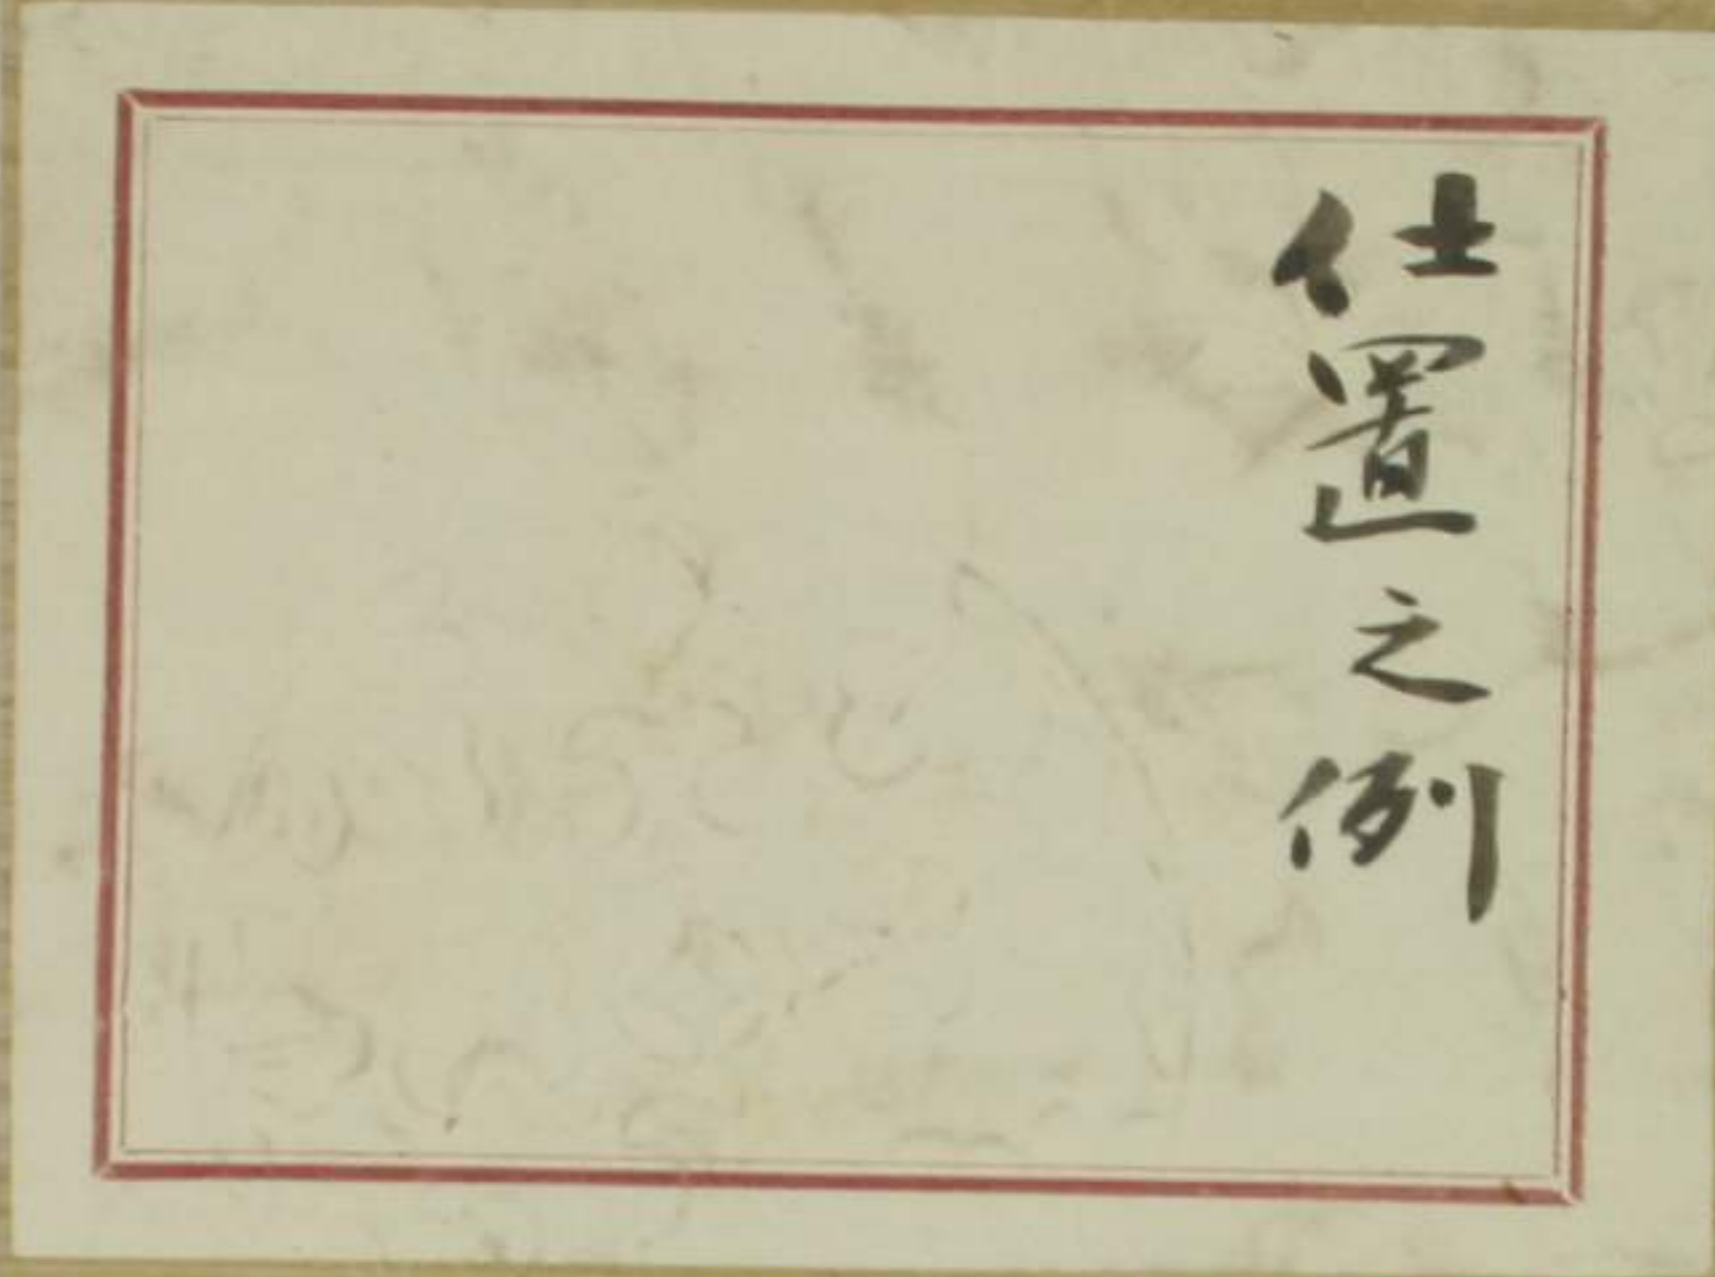 仕置之例